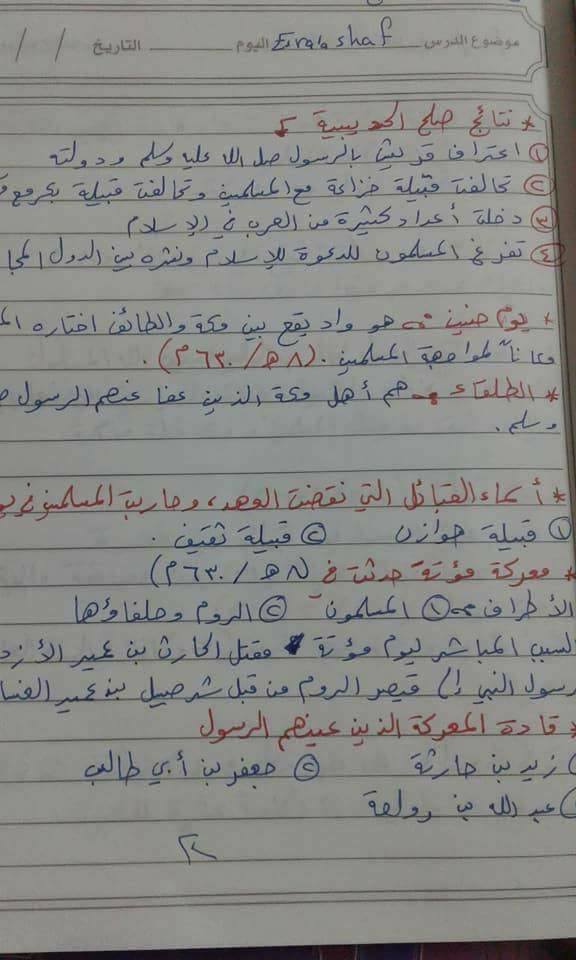 موضوع الدرس Esraa shaf اليوم التاريخ / /
* نتائج صلح الحديبية
① اعتراف قريش بالرسول صل الله عليه وسلم ودولته
② تحالفت قبيلة خزاعة مع المسلمين وتحالفت قبيلة بكر مع
③ دخلت أعداد كثيرة من العرب في الإسلام
④ تفرغ المسلمون للدعوة للإسلام ونشره بين الدول
* يوم حنين هو واد يقع بين مكة والطائف اختاره
مكاناً لمواجهة المسلمين. (٨ هـ / ٦٣٠ م).
* الطلقاء هم أهل مكة الذين عفا عنهم الرسول
وسلم.
* أسماء القبائل التي نقضت العهد، وحاربت المسلمين في
① قبيلة هوازن ② قبيلة ثقيف.
* معركة مؤتة حدثت في (٨ هـ / ٦٣٠ م)
الأطراف ① المسلمون ② الروم وحلفاؤها
السبب المباشر ليوم مؤتة مقتل الحارث بن عمير
رسول النبي إلى قيصر الروم من قبل شرحبيل بن عمير
* قادة المعركة الذين عينهم الرسول
زيد بن حارثة ② جعفر بن أبي طالب
عبد الله بن رواحة